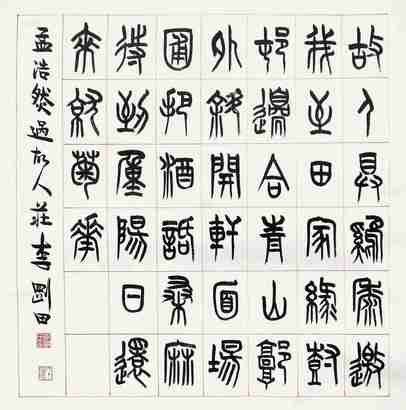 故人具雞黍邀
我至田家綠樹
邨邊合青山郭
外斜開軒面場
圃把酒話桑麻
待到重陽日還
來就菊花
孟浩然過故人莊李剛田